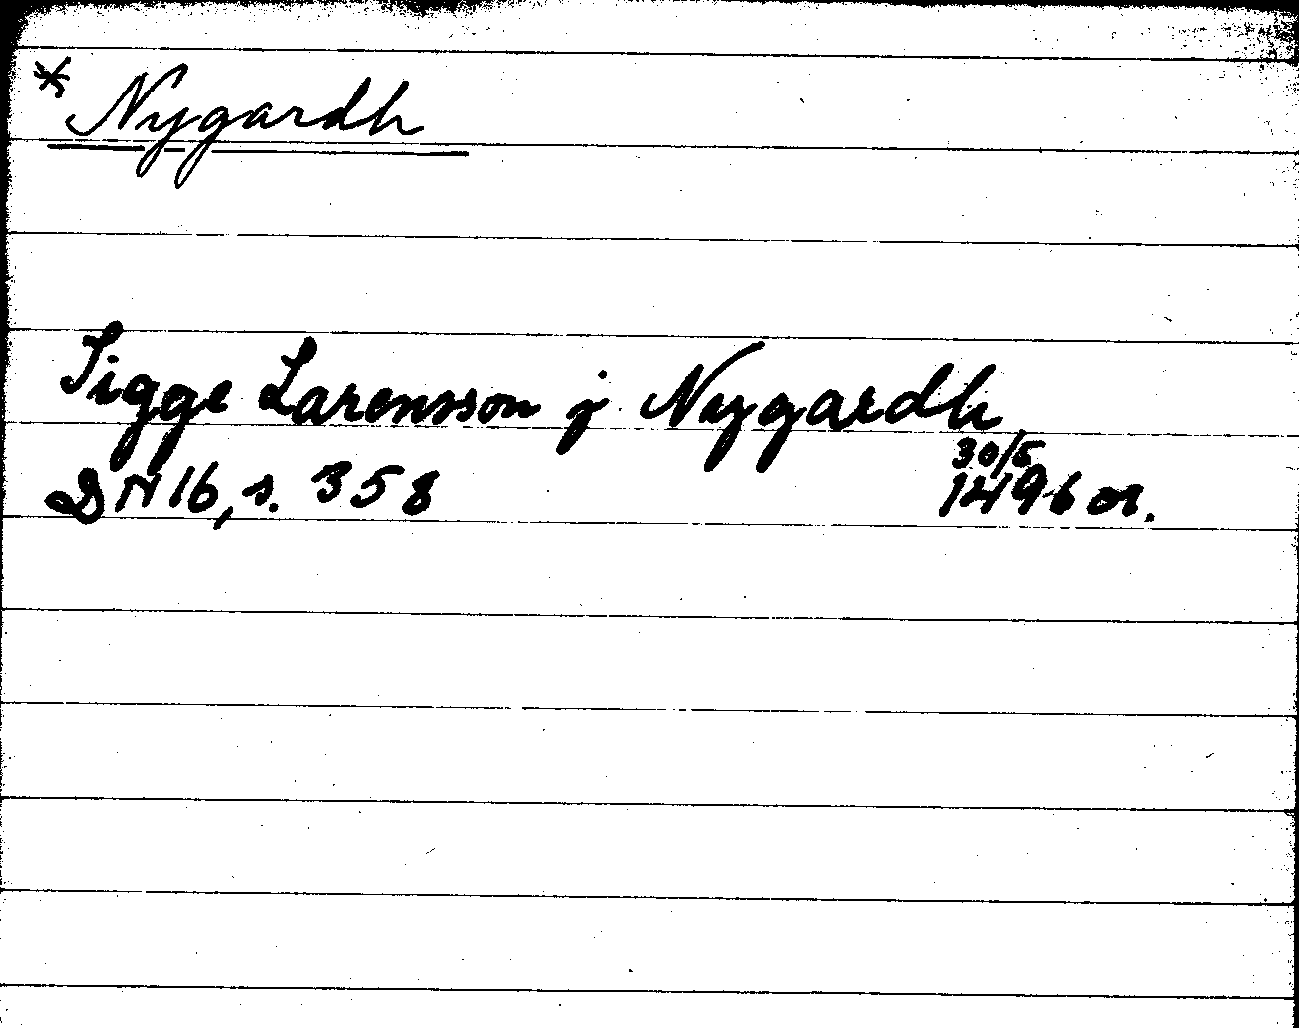 * Nygardh
Sigge Larensson j Nygardh
30/5
DN 16, s. 358 1496 or.